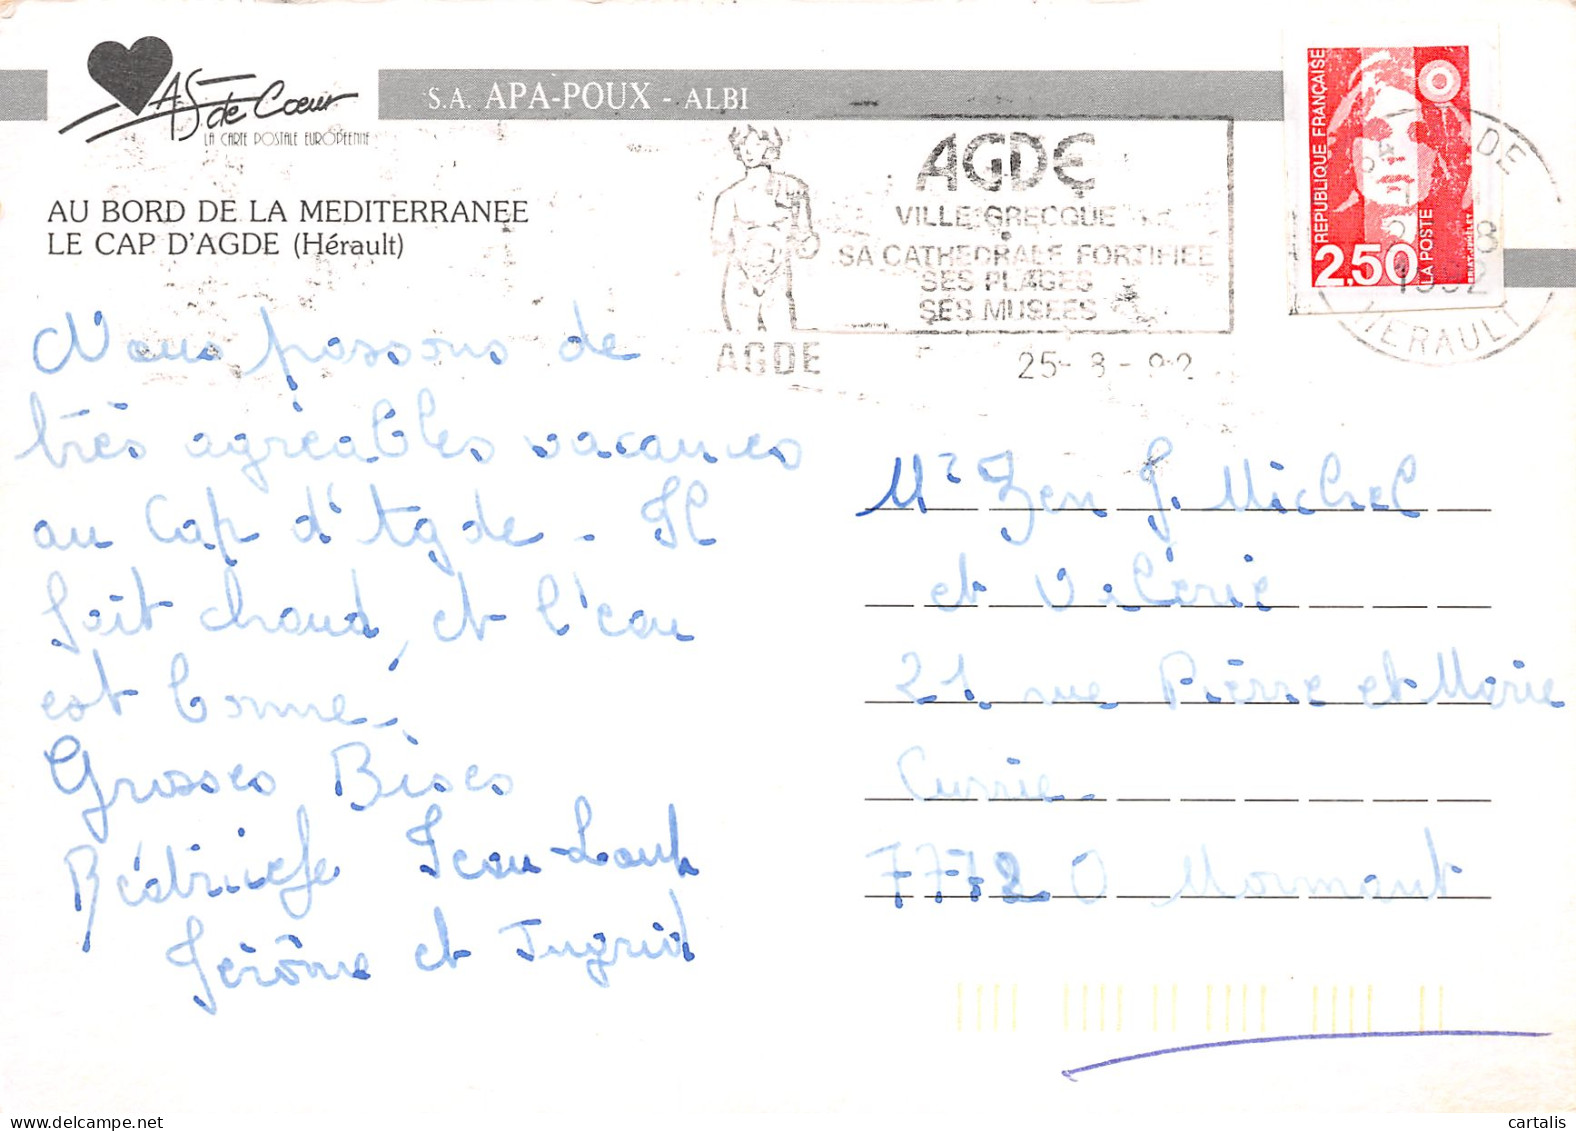 AS de Coeur
LA CARTE POSTALE EUROPÉENNE
S.A. APA-POUX - ALBI
AU BORD DE LA MEDITERRANEE
LE CAP D'AGDE (Hérault)
AGDE
VILLE GRECQUE
SA CATHEDRALE FORTIFIEE
SES PLAGES
SES MUSEES
AGDE
25-8-92
REPUBLIQUE FRANÇAISE
2,50
LA POSTE
DE
1992
HERAULT
Nous passons de
très agréables vacances
au Cap d'Agde - Il
fait chaud, et l'eau
est bonne.
Grosses Bises
Jean-Louk
Jérôme et Ingrid
Mr J. Michel
et Valérie
21, rue Pierre et Marie
Curie
77720 Mormant
cartalis